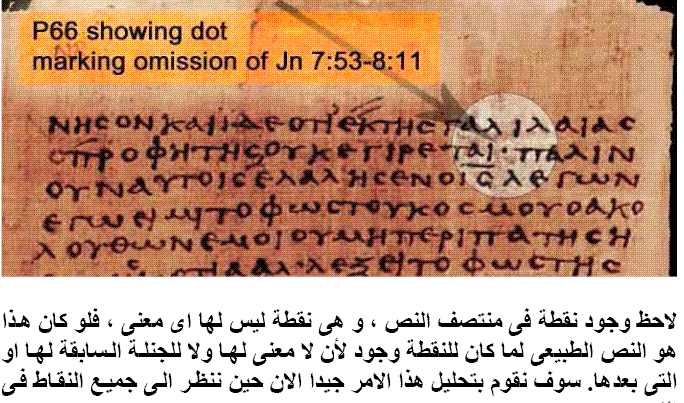 P66 showing dot
marking omission of Jn 7:53-8:11
ΝΗϹΟΝΚΑΙΙΔΕΟΤΙΕΚΤΗϹΓΑΛΙΛΑΙΑϹ
ΟΠΡΟΦΗΤΗϹΟΥΚΕΓΙΡΕΤΑΙ·ΠΑΛΙΝ
ΟΥΝΑΥΤΟΙϹΕΛΑΛΗϹΕΝΟΙϹΛΕΓΩΝ
ΕΓΩΕΙΜΙΤΟΦΩϹΤΟΥΚΟϹΜΟΥΟΑΚΟ
ΛΟΥΘΩΝΕΜΟΙΟΥΜΗΠΕΡΙΠΑΤΗϹΗ
ΤΟΦΩϹΤΗϹ
لاحظ وجود نقطة فى منتصف النص ، و هى نقطة ليس لها اى معنى ، فلو كان هذا
هو النص الطبيعى لما كان للنقطة وجود لأن لا معنى لها ولا للجنلة السابقة لها او
التى بعدها. سوف نقوم بتحليل هذا الامر جيدا الان حين ننظر الى جميع النقاط فى